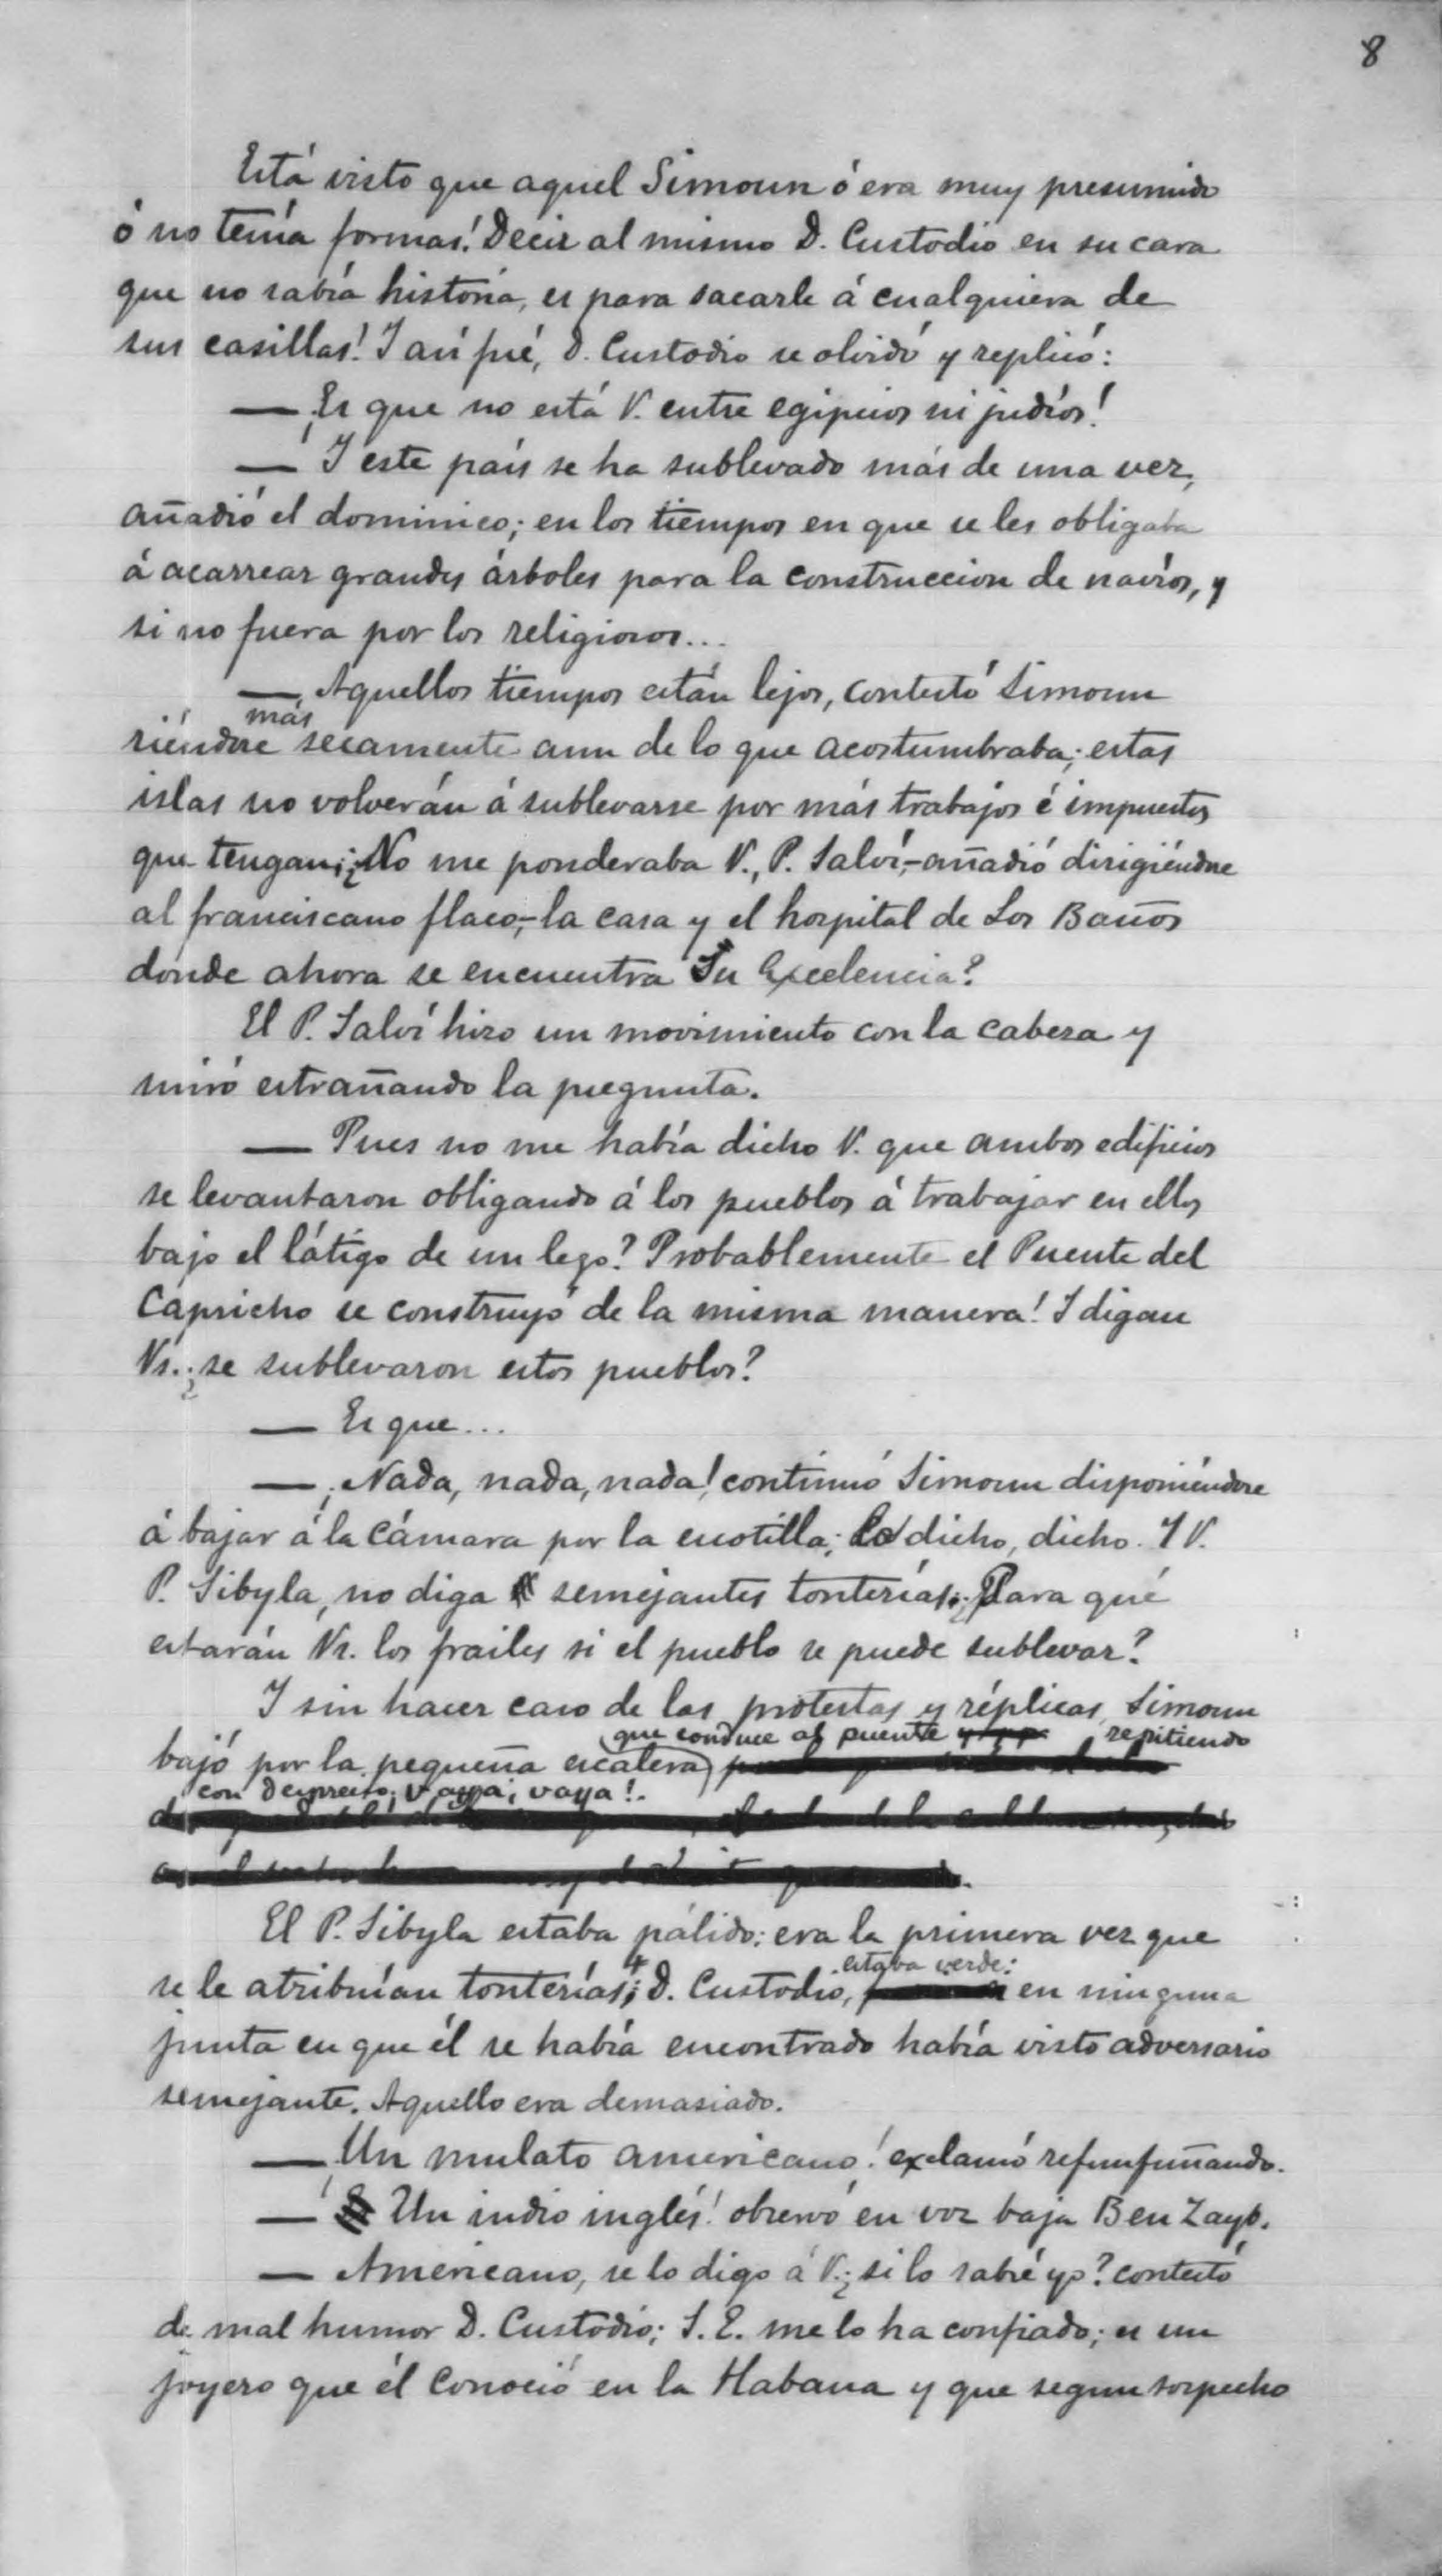 8
Está visto que aquel Simoun ó era muy presumido
ó no tenía formas! Decir al mismo D. Custodio en su cara
que no sabía historia, es para sacarle á cualquiera de
sus casillas! I así fué, D. Custodio se olvidó y replicó:
— ¡Es que no está V. entre egipcios ni judíos!
— I este país se ha sublevado más de una vez,
añadió el dominico; en los tiempos en que se les obligaba
á acarrear grandes árboles para la construccion de navíos, y
si no fuera por los religiosos...
— Aquellos tiempos están lejos, contestó Simoun
más
riéndose secamente aun de lo que acostumbraba; estas
islas no volverán á sublevarse por más trabajos é impuestos
que tengan; ¿No me ponderaba V., P. Salví,- añadió dirigiéndose
al franciscano flaco,- la casa y el hospital de Los Baños
donde ahora se encuentra Su Excelencia?
El P. Salví hizo un movimiento con la cabeza y
miró estrañando la pregunta.
— Pues no me había dicho V. que ambos edificios
se levantaron obligando á los pueblos á trabajar en ellos
bajo el látigo de un lego? Probablemente el Puente del
Capricho se construyó de la misma manera! I digan
Vs.; ¿se sublevaron estos pueblos?
— Es que...
— ¡Nada, nada, nada! continuó Simoun disponiéndose
á bajar á la cámara por la escotilla; lo dicho, dicho. I V.
P. Sibyla, no diga semejantes tonterías. ¿Para qué
estarán Vs. los frailes si el pueblo se puede sublevar?
I sin hacer caso de las protestas y réplicas, Simoun
que conduce al puente repitiendo
bajó por la pequeña escalera
con desprecio: Vaya, vaya!.
El P. Sibyla estaba pálido: era la primera vez que
estaba verde:
se le atribuían tonterías; D. Custodio, en ninguna
junta en que él se había encontrado había visto adversario
semejante. Aquello era demasiado.
— ¡Un mulato americano! exclamó refunfuñando.
— ¡Un indio inglés! observó en voz baja Ben Zayb.
— Americano, se lo digo á V.; ¿si lo sabré yo? contestó
de mal humor D. Custodio; S. E. me lo ha confiado; es un
joyero que él conoció en la Habana y que segun sospecho